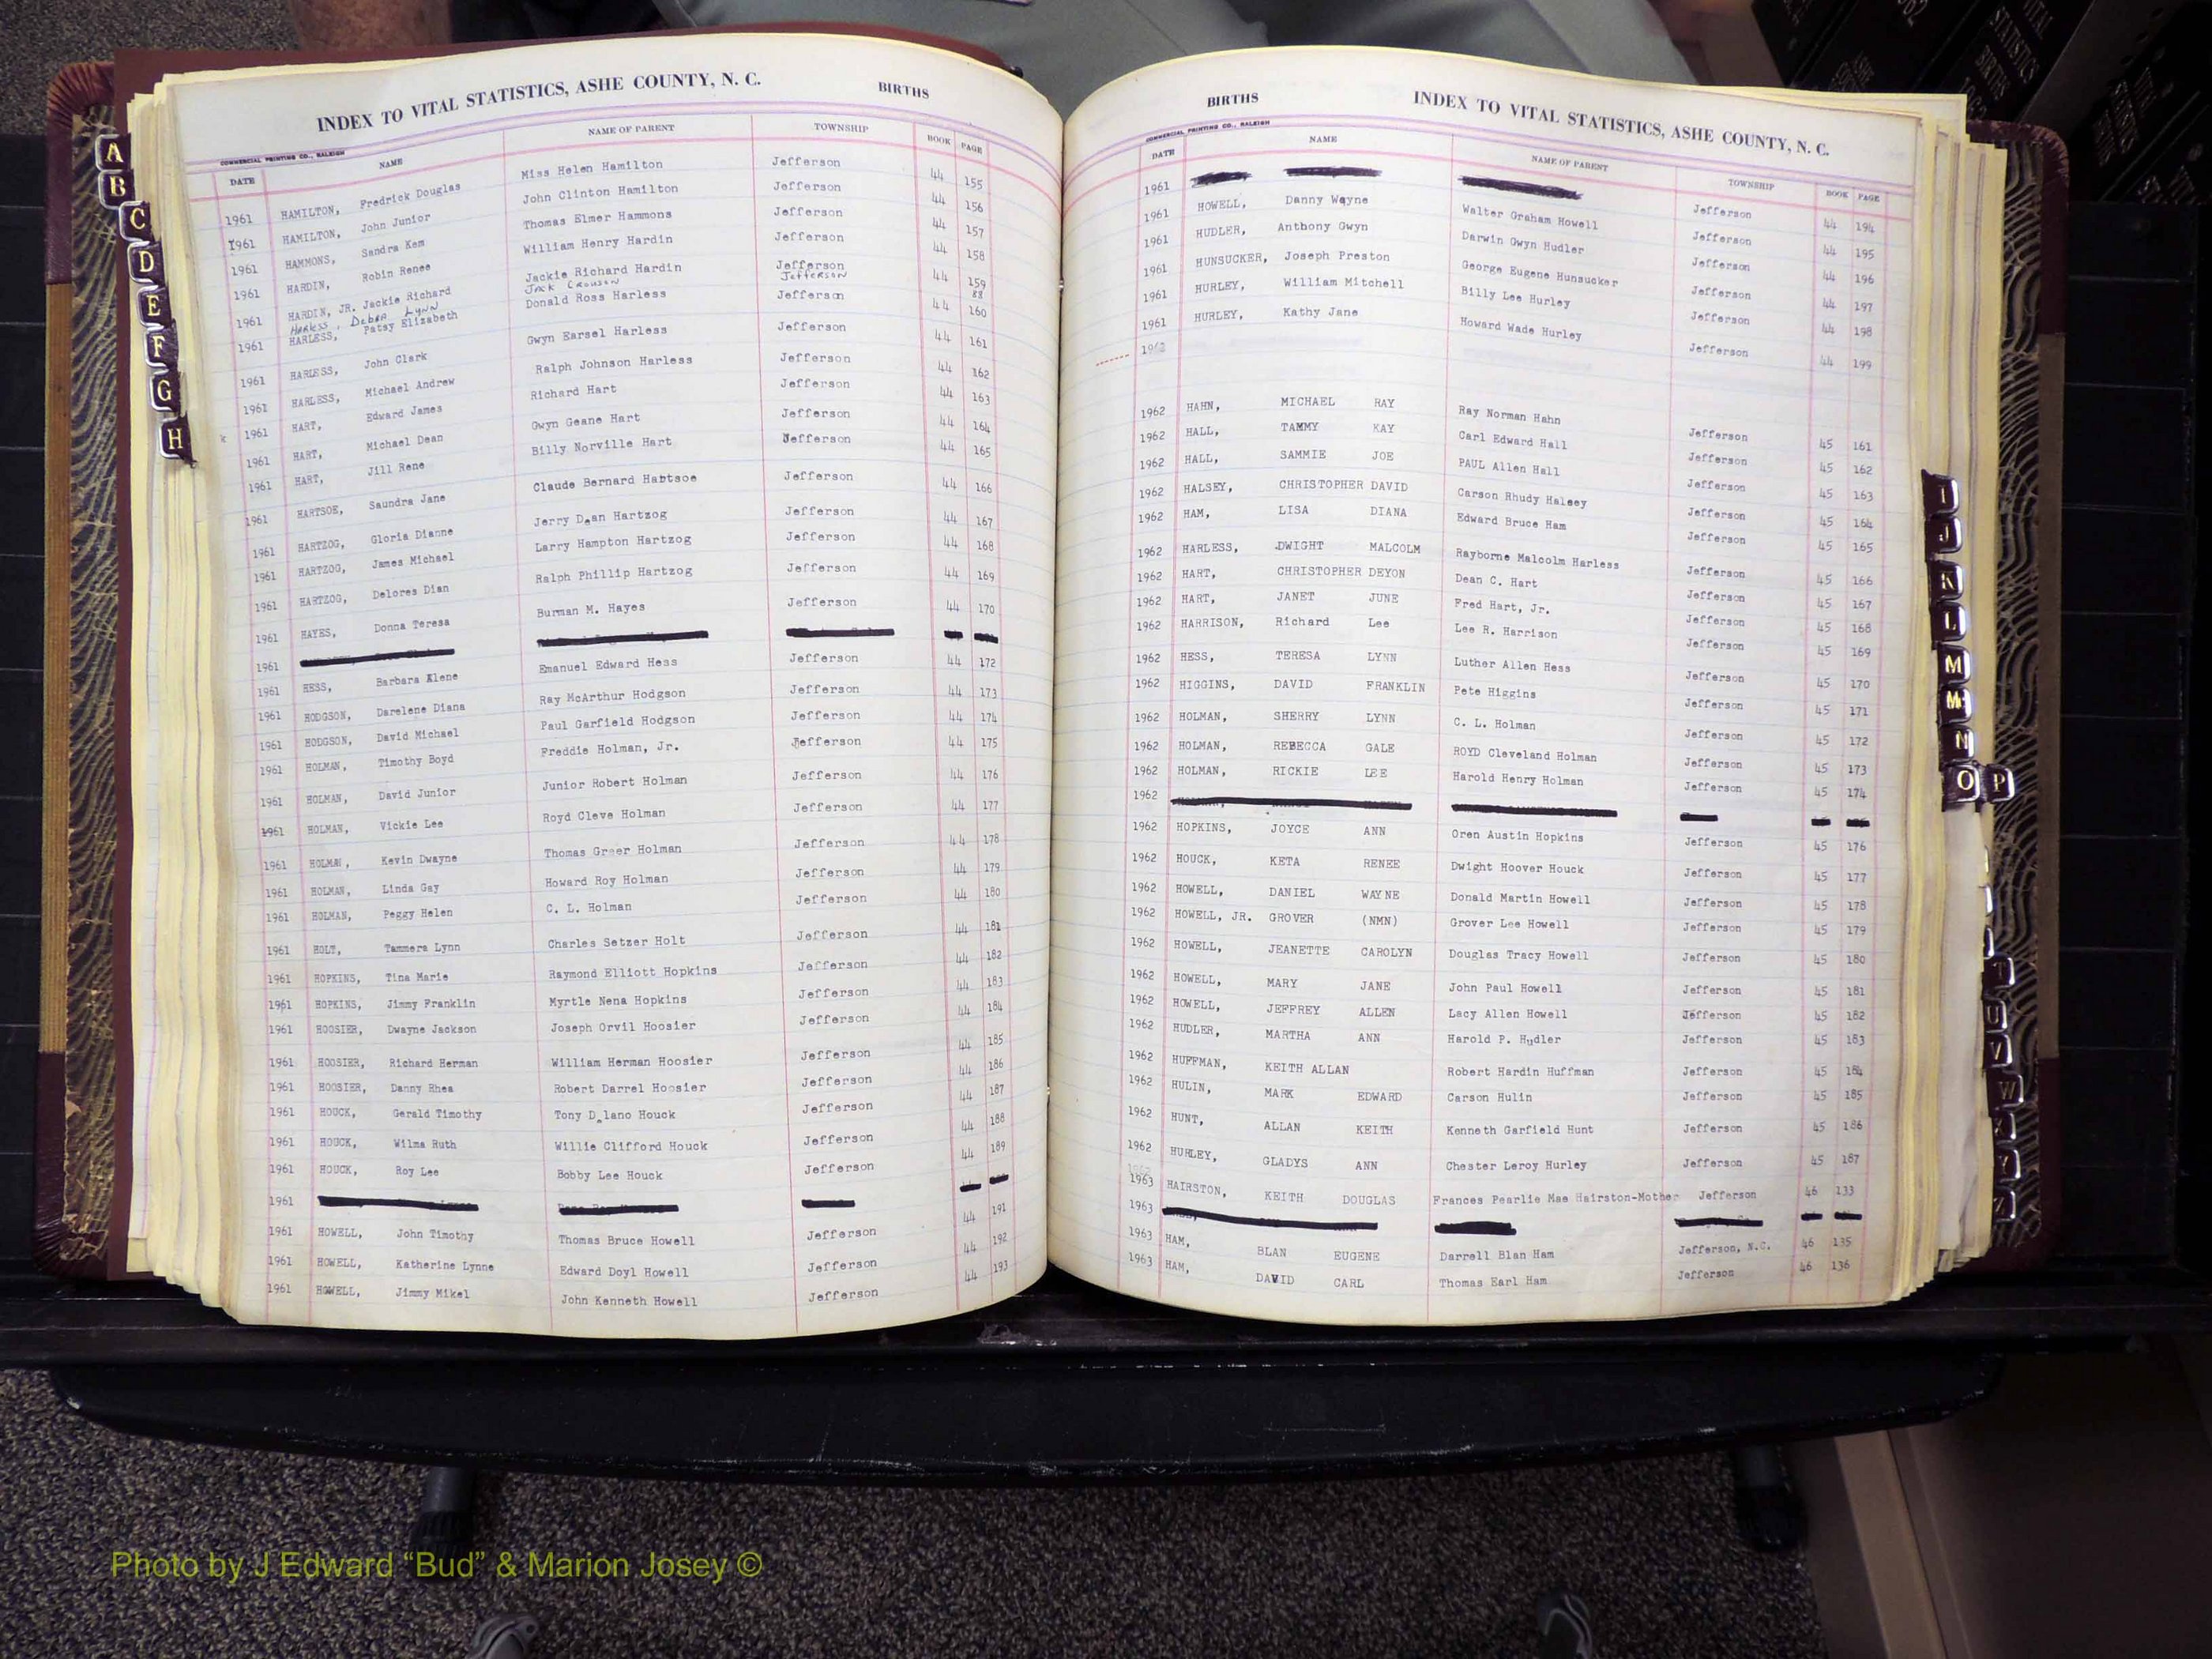 INDEX TO VITAL STATISTICS, ASHE COUNTY, N. C. BIRTHS
COMMERCIAL PRINTING CO., RALEIGH
DATE NAME NAME OF PARENT TOWNSHIP BOOK PAGE
1961 HAMILTON, Fredrick Douglas Miss Helen Hamilton Jefferson 44 155
1961 HAMILTON, John Junior John Clinton Hamilton Jefferson 44 156
1961 HAMMONS, Sandra Kem Thomas Elmer Hammons Jefferson 44 157
1961 HARDIN, Robin Renee William Henry Hardin Jefferson 44 158
1961 HARDIN, JR. Jackie Richard Jackie Richard Hardin Jefferson 44 159
Harless, Debra Lynn Jack Crouson Jefferson 88
1961 HARLESS, Patsy Elizabeth Donald Ross Harless Jefferson 44 160
1961 HARLESS, John Clark Gwyn Earsel Harless Jefferson 44 161
1961 HARLESS, Michael Andrew Ralph Johnson Harless Jefferson 44 162
1961 HART, Edward James Richard Hart Jefferson 44 163
1961 HART, Michael Dean Gwyn Geane Hart Jefferson 44 164
1961 HART, Jill Rene Billy Norville Hart Jefferson 44 165
1961 HARTSOE, Saundra Jane Claude Bernard Habtsoe Jefferson 44 166
1961 HARTZOG, Gloria Dianne Jerry Dean Hartzog Jefferson 44 167
1961 HARTZOG, James Michael Larry Hampton Hartzog Jefferson 44 168
1961 HARTZOG, Delores Dian Ralph Phillip Hartzog Jefferson 44 169
1961 HAYES, Donna Teresa Burman M. Hayes Jefferson 44 170
1961
1961 HESS, Barbara Elene Emanuel Edward Hess Jefferson 44 172
1961 HODGSON, Darelene Diana Ray McArthur Hodgson Jefferson 44 173
1961 HODGSON, David Michael Paul Garfield Hodgson Jefferson 44 174
1961 HOLMAN, Timothy Boyd Freddie Holman, Jr. Jefferson 44 175
1961 HOLMAN, David Junior Junior Robert Holman Jefferson 44 176
1961 HOLMAN, Vickie Lee Royd Cleve Holman Jefferson 44 177
1961 HOLMAN, Kevin Dwayne Thomas Greer Holman Jefferson 44 178
1961 HOLMAN, Linda Gay Howard Roy Holman Jefferson 44 179
1961 HOLMAN, Peggy Helen C. L. Holman Jefferson 44 180
1961 HOLT, Tammera Lynn Charles Setzer Holt Jefferson 44 181
1961 HOPKINS, Tina Marie Raymond Elliott Hopkins Jefferson 44 182
1961 HOPKINS, Jimmy Franklin Myrtle Nena Hopkins Jefferson 44 183
1961 HOOSIER, Dwayne Jackson Joseph Orvil Hoosier Jefferson 44 184
1961 HOOSIER, Richard Herman William Herman Hoosier Jefferson 44 185
1961 HOOSIER, Danny Rhea Robert Darrel Hoosier Jefferson 44 186
1961 HOUCK, Gerald Timothy Tony Delano Houck Jefferson 44 187
1961 HOUCK, Wilma Ruth Willie Clifford Houck Jefferson 44 188
1961 HOUCK, Roy Lee Bobby Lee Houck Jefferson 44 189
1961
1961 HOWELL, John Timothy Thomas Bruce Howell Jefferson 44 191
1961 HOWELL, Katherine Lynne Edward Doyl Howell Jefferson 44 192
1961 HOWELL, Jimmy Mikel John Kenneth Howell Jefferson 44 193
BIRTHS INDEX TO VITAL STATISTICS, ASHE COUNTY, N. C.
COMMERCIAL PRINTING CO., RALEIGH
DATE NAME NAME OF PARENT TOWNSHIP BOOK PAGE
1961
1961 HOWELL, Danny Wayne Walter Graham Howell Jefferson 44 194
1961 HUDLER, Anthony Gwyn Darwin Gwyn Hudler Jefferson 44 195
1961 HUNSUCKER, Joseph Preston George Eugene Hunsucker Jefferson 44 196
1961 HURLEY, William Mitchell Billy Lee Hurley Jefferson 44 197
1961 HURLEY, Kathy Jane Howard Wade Hurley Jefferson 44 198
Jefferson 44 199
1962 HAHN, MICHAEL RAY Ray Norman Hahn Jefferson 45 161
1962 HALL, TAMMY KAY Carl Edward Hall Jefferson 45 162
1962 HALL, SAMMIE JOE PAUL Allen Hall Jefferson 45 163
1962 HALSEY, CHRISTOPHER DAVID Carson Rhudy Halsey Jefferson 45 164
1962 HAM, LISA DIANA Edward Bruce Ham Jefferson 45 165
1962 HARLESS, DWIGHT MALCOLM Rayborne Malcolm Harless Jefferson 45 166
1962 HART, CHRISTOPHER DEYON Dean C. Hart Jefferson 45 167
1962 HART, JANET JUNE Fred Hart, Jr. Jefferson 45 168
1962 HARRISON, Richard Lee Lee R. Harrison Jefferson 45 169
1962 HESS, TERESA LYNN Luther Allen Hess Jefferson 45 170
1962 HIGGINS, DAVID FRANKLIN Pete Higgins Jefferson 45 171
1962 HOLMAN, SHERRY LYNN C. L. Holman Jefferson 45 172
1962 HOLMAN, REBECCA GALE ROYD Cleveland Holman Jefferson 45 173
1962 HOLMAN, RICKIE LEE Harold Henry Holman Jefferson 45 174
1962
1962 HOPKINS, JOYCE ANN Oren Austin Hopkins Jefferson 45 176
1962 HOUCK, KETA RENEE Dwight Hoover Houck Jefferson 45 177
1962 HOWELL, DANIEL WAYNE Donald Martin Howell Jefferson 45 178
1962 HOWELL, JR. GROVER (NMN) Grover Lee Howell Jefferson 45 179
1962 HOWELL, JEANETTE CAROLYN Douglas Tracy Howell Jefferson 45 180
1962 HOWELL, MARY JANE John Paul Howell Jefferson 45 181
1962 HOWELL, JEFFREY ALLEN Lacy Allen Howell Jefferson 45 182
1962 HUDLER, MARTHA ANN Harold P. Hudler Jefferson 45 183
1962 HUFFMAN, KEITH ALLAN Robert Hardin Huffman Jefferson 45 184
1962 HULIN, MARK EDWARD Carson Hulin Jefferson 45 185
1962 HUNT, ALLAN KEITH Kenneth Garfield Hunt Jefferson 45 186
1962 HURLEY, GLADYS ANN Chester Leroy Hurley Jefferson 45 187
1963 HAIRSTON, KEITH DOUGLAS Frances Pearlie Mae Hairston-Mother Jefferson 46 133
1963
1963 HAM, BLAN EUGENE Darrell Blan Ham Jefferson, N.C. 46 135
1963 HAM, DAVID CARL Thomas Earl Ham Jefferson 46 136
A
B
C
D
E
F
G
H
I
J
K
L
M
Mc
N
O P
T
U
V
W
Y
Z
VITAL STATISTICS
Photo by J Edward “Bud” & Marion Josey ©